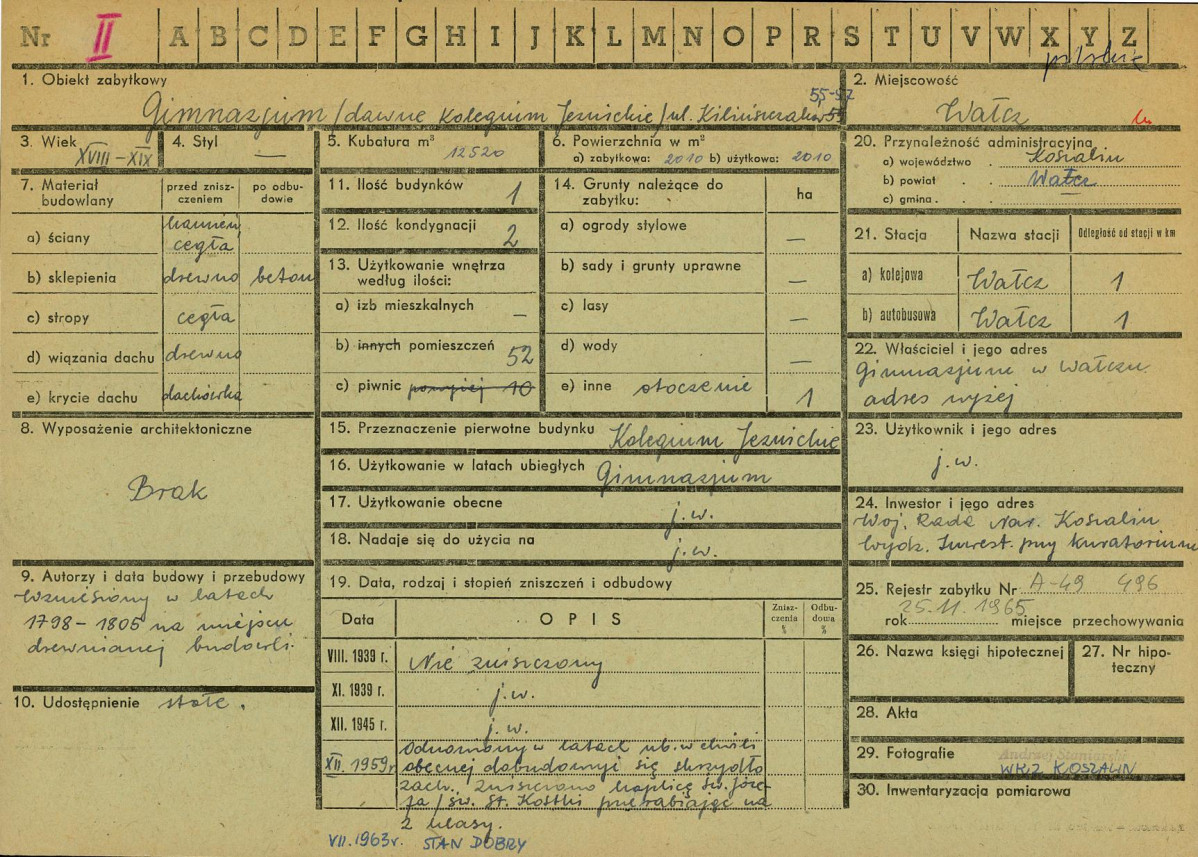 Nr II A B C D E F G H I J K L M N O P R S T U V W X Y Z
1. Obiekt zabytkowy
55-57
Gimnazjum /dawne Kolegium Jezuickie/ ul. Kilińszczaków
2. Miejscowość
Wałcz
3. Wiek
XVIII – XIX
4. Styl
—
5. Kubatura m³
12520
6. Powierzchnia w m²
a) zabytkowa: 2010 b) użytkowa: 2010
7. Materiał budowlany
przed zniszczeniem
po odbudowie
a) ściany
kamień, cegła
b) sklepienia
drewno
beton
c) stropy
cegła
d) wiązania dachu
drewno
e) krycie dachu
dachówka
8. Wyposażenie architektoniczne
Brak
9. Autorzy i data budowy i przebudowy
Wzniesiony w latach
1798 – 1805 na miejscu
drewnianej budowli.
10. Udostępnienie stałe.
11. Ilość budynków
1
12. Ilość kondygnacji
2
13. Użytkowanie wnętrza
według ilości:
a) izb mieszkalnych
—
b) innych pomieszczeń
52
c) piwnic 10
14. Grunty należące do
zabytku:
ha
a) ogrody stylowe
—
b) sady i grunty uprawne
—
c) lasy
—
d) wody
—
e) inne otoczenie
1
15. Przeznaczenie pierwotne budynku Kolegium Jezuickie
16. Użytkowanie w latach ubiegłych Gimnazjum
17. Użytkowanie obecne j.w.
18. Nadaje się do użycia na j.w.
19. Data, rodzaj i stopień zniszczeń i odbudowy
Data
OPIS
Zniszczenia %
Odbudowa %
VIII. 1939 r.
Nie zniszczony
XI. 1939 r.
j.w.
XII. 1945 r.
j.w.
XII. 1959 r.
Odnowiony w latach ub. w chwili
obecnej dobudowuje się skrzydło
zach. Zniszczono kaplicę św. Józe-
fa / św. St. Kostki przerabiając na
2 klasy.
VII. 1963 r. STAN DOBRY
20. Przynależność administracyjna
a) województwo . Koszalin
b) powiat . . Wałcz
c) gmina . . —
21. Stacja
Nazwa stacji
Odległość od stacji w km
a) kolejowa
Wałcz
1
b) autobusowa
Wałcz
1
22. Właściciel i jego adres
Gimnazjum w Wałczu
adres wyżej
23. Użytkownik i jego adres
j.w.
24. Inwestor i jego adres
Woj. Rada Nar. Koszalin
Wydz. Inwest. przy Kuratorium
25. Rejestr zabytku Nr A-49 496
25.11.1965
rok miejsce przechowywania
26. Nazwa księgi hipotecznej
27. Nr hipoteczny
28. Akta
29. Fotografie
WKZ KOSZALIN
30. Inwentaryzacja pomiarowa